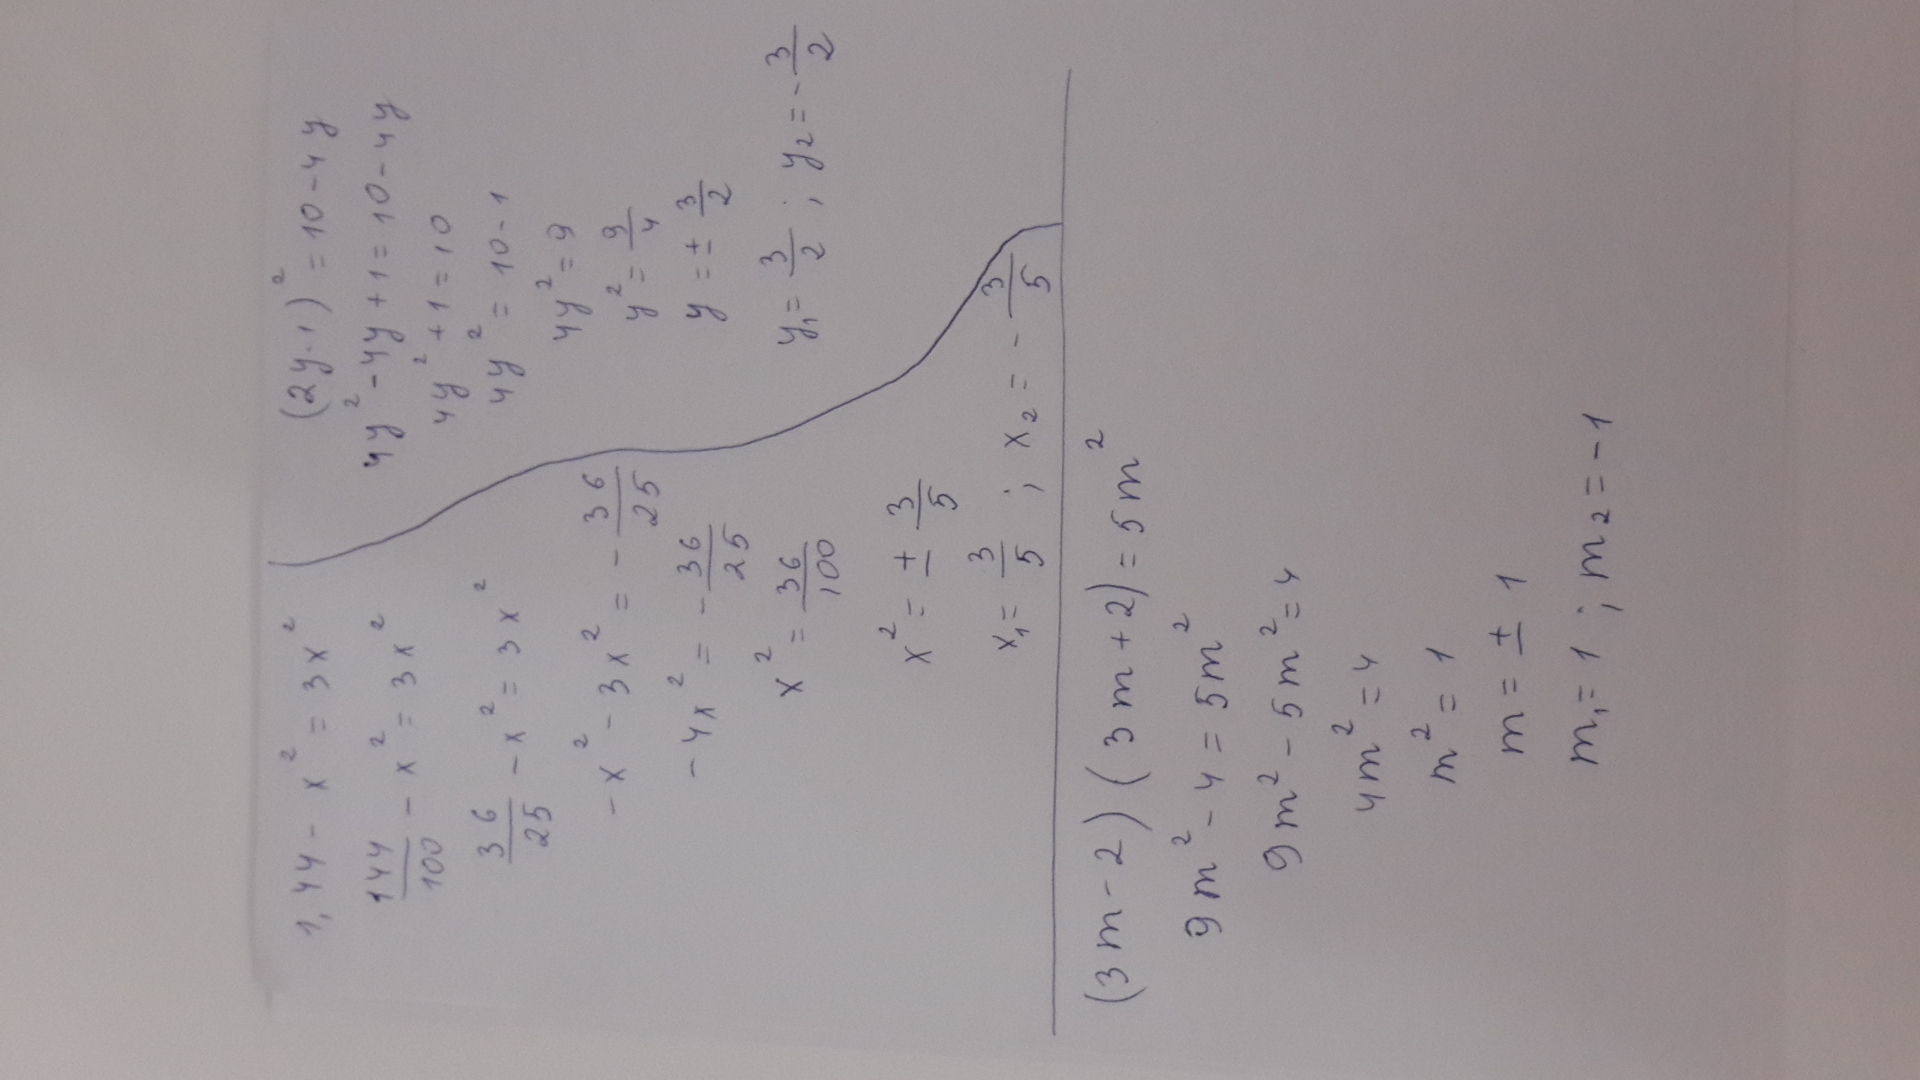 1,44 - x² = 3x²
144/100 - x² = 3x²
36/25 - x² = 3x²
-x² - 3x² = -36/25
-4x² = -36/25
x² = 36/100
x² = ± 3/5
x₁ = 3/5 ; x₂ = -3/5
(2y-1)² = 10-4y
4y² - 4y + 1 = 10 - 4y
4y² + 1 = 10
4y² = 10-1
4y² = 9
y² = 9/4
y = ± 3/2
y₁ = 3/2 ; y₂ = -3/2
(3m-2)(3m+2) = 5m²
9m² - 4 = 5m²
9m² - 5m² = 4
4m² = 4
m² = 1
m = ± 1
m₁ = 1 ; m₂ = -1